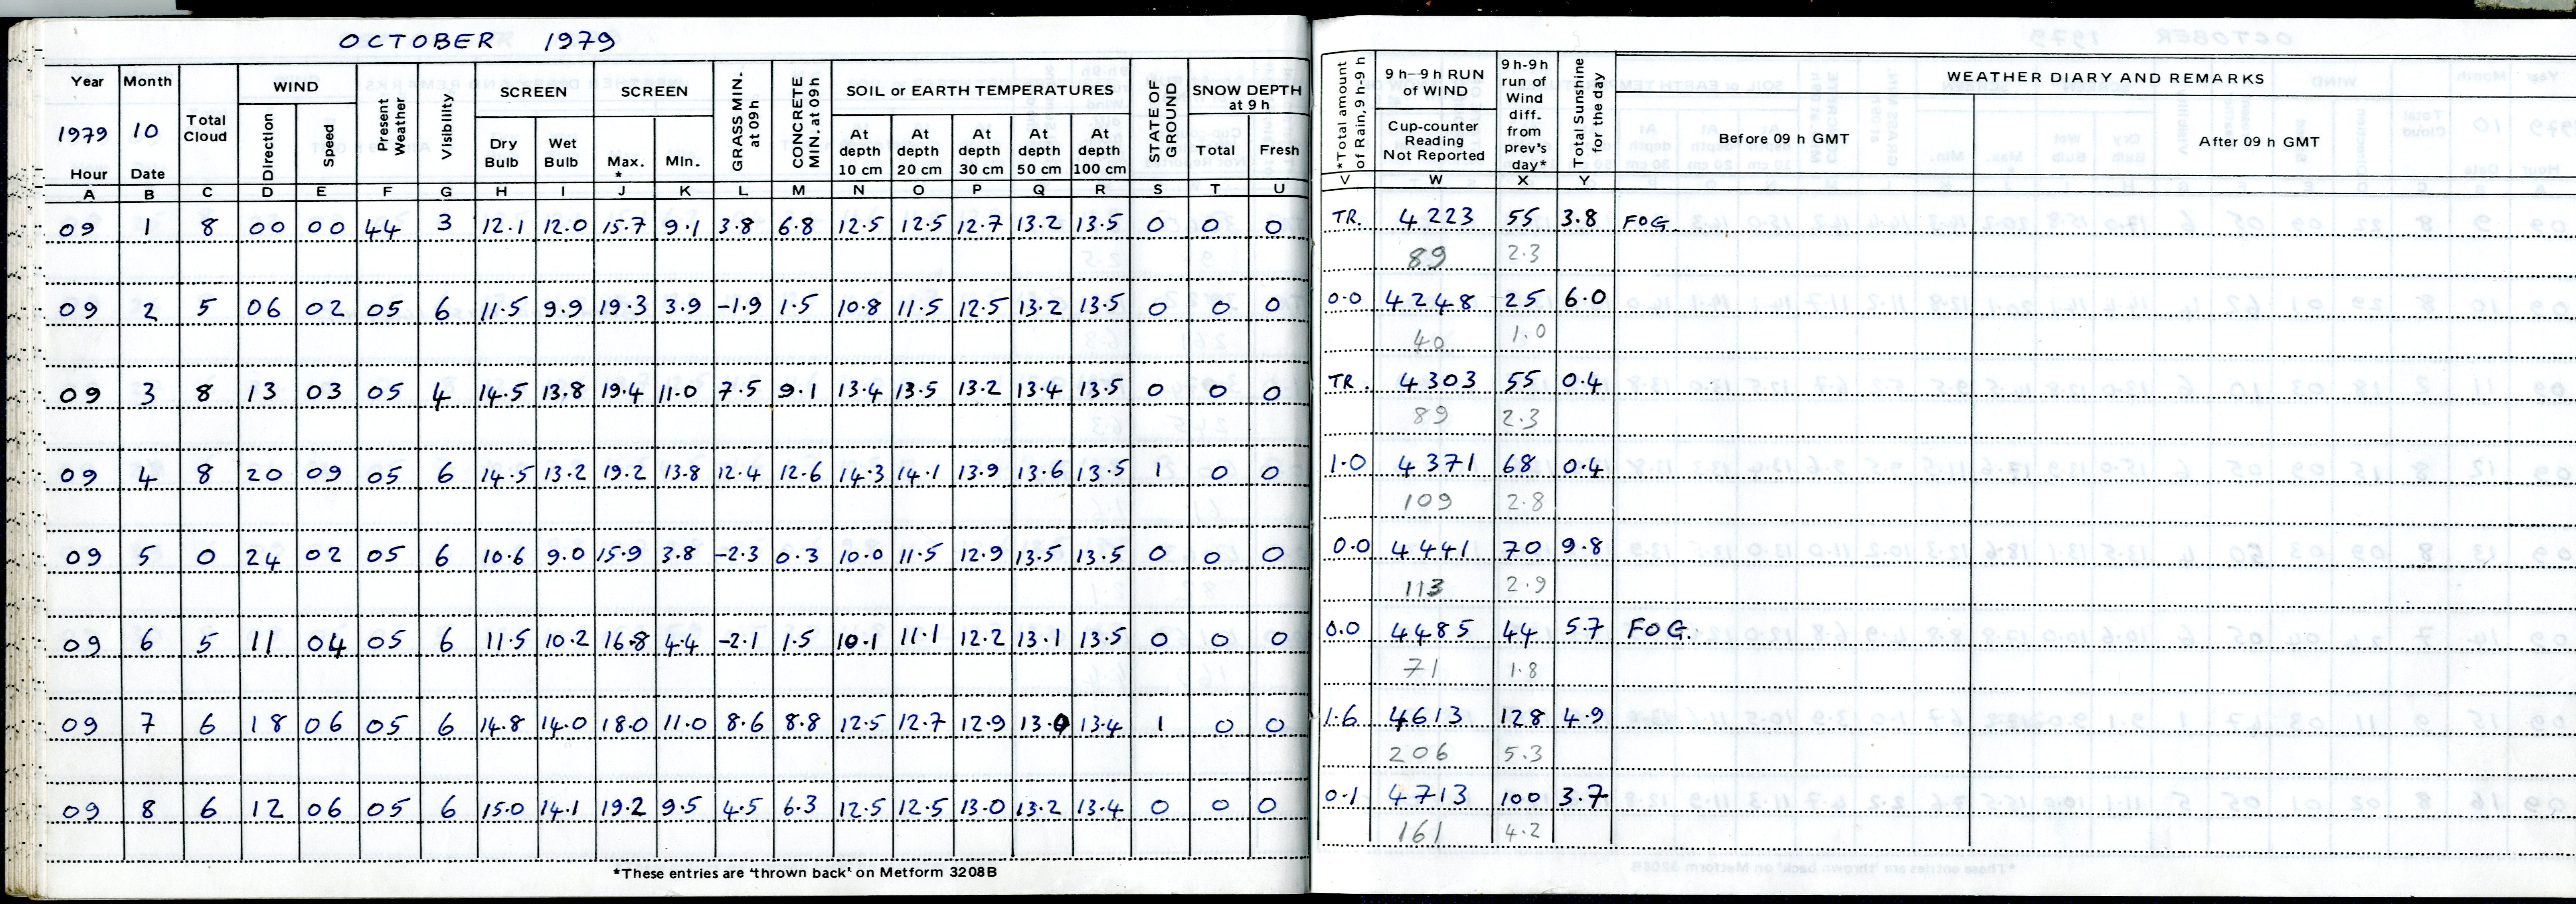 OCTOBER 1979
Year Month Total Cloud WIND Present Weather Visibility SCREEN SCREEN GRASS MIN. at 09h CONCRETE MIN. at 09h SOIL or EARTH TEMPERATURES STATE OF GROUND SNOW DEPTH at 9 h *Total amount of Rain, 9 h-9 h 9 h—9 h RUN of WIND 9 h-9 h run of Wind diff. from prev's day* Total Sunshine for the day WEATHER DIARY AND REMARKS
1979 10 Direction Speed Dry Bulb Wet Bulb Max. * Min. At depth 10 cm At depth 20 cm At depth 30 cm At depth 50 cm At depth 100 cm Total Fresh Cup-counter Reading Not Reported Before 09 h GMT After 09 h GMT
Hour Date
A B C D E F G H I J K L M N O P Q R S T U V W X Y
09 1 8 00 00 44 3 12.1 12.0 15.7 9.1 3.8 6.8 12.5 12.5 12.7 13.2 13.5 0 0 0 TR. 4223 55 3.8 FOG.
89 2.3
09 2 5 06 02 05 6 11.5 9.9 19.3 3.9 -1.9 1.5 10.8 11.5 12.5 13.2 13.5 0 0 0 0.0 4248 25 6.0
40 1.0
09 3 8 13 03 05 4 14.5 13.8 19.4 11.0 7.5 9.1 13.4 13.5 13.2 13.4 13.5 0 0 0 TR. 4303 55 0.4
89 2.3
09 4 8 20 09 05 6 14.5 13.2 19.2 13.8 12.4 12.6 14.3 14.1 13.9 13.6 13.5 1 0 0 1.0 4371 68 0.4
109 2.8
09 5 0 24 02 05 6 10.6 9.0 15.9 3.8 -2.3 0.3 10.0 11.5 12.9 13.5 13.5 0 0 0 0.0 4441 70 9.8
113 2.9
09 6 5 11 04 05 6 11.5 10.2 16.8 4.4 -2.1 1.5 10.1 11.1 12.2 13.1 13.5 0 0 0 0.0 4485 44 5.7 FOG.
71 1.8
09 7 6 18 06 05 6 14.8 14.0 18.0 11.0 8.6 8.8 12.5 12.7 12.9 13.0 13.4 1 0 0 1.6 4613 128 4.9
206 5.3
09 8 6 12 06 05 6 15.0 14.1 19.2 9.5 4.5 6.3 12.5 12.5 13.0 13.2 13.4 0 0 0 0.1 4713 100 3.7
161 4.2
*These entries are 'thrown back' on Metform 3208B